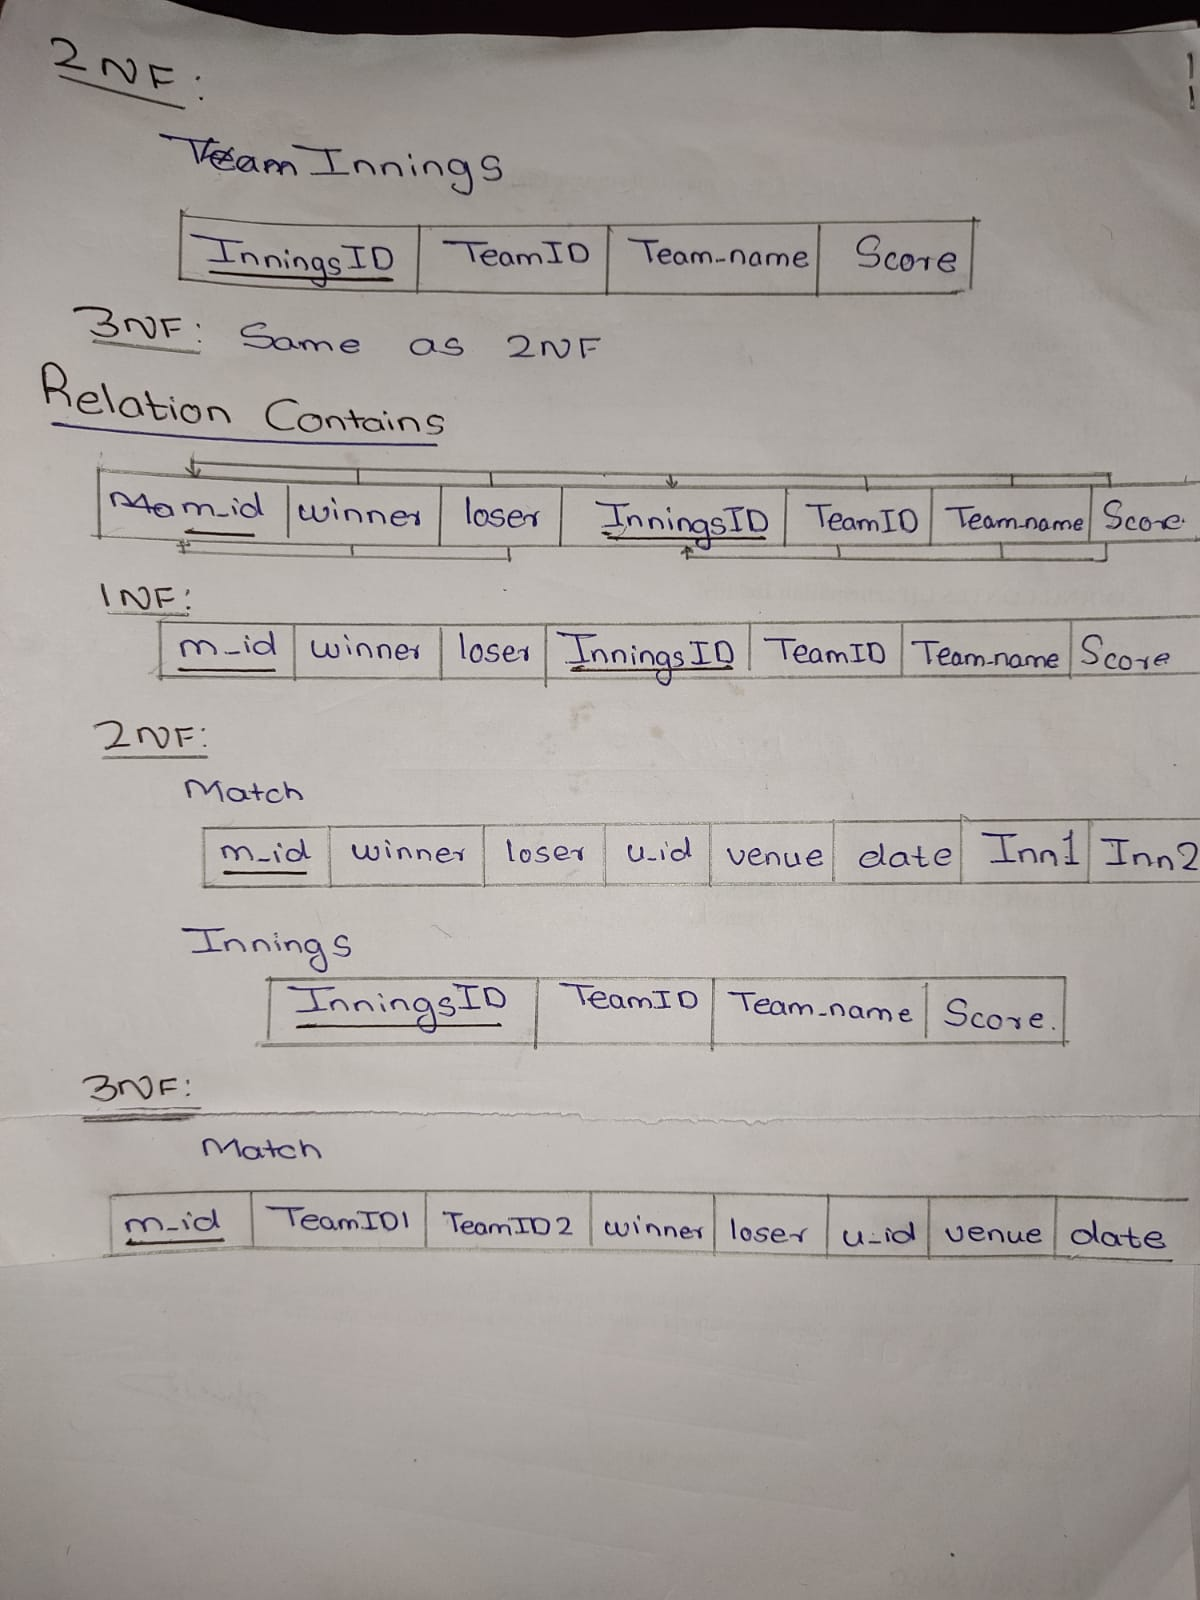 2NF:
Team Innings
InningsID TeamID Team-name Score
3NF: Same as 2NF
Relation Contains
m-id winner loser InningsID TeamID Team-name Score
1NF:
m-id winner loser InningsID TeamID Team-name Score
2NF:
Match
m-id winner loser u-id venue date Inn1 Inn2
Innings
InningsID TeamID Team-name Score.
3NF:
Match
m-id TeamID1 TeamID2 winner loser u-id venue date